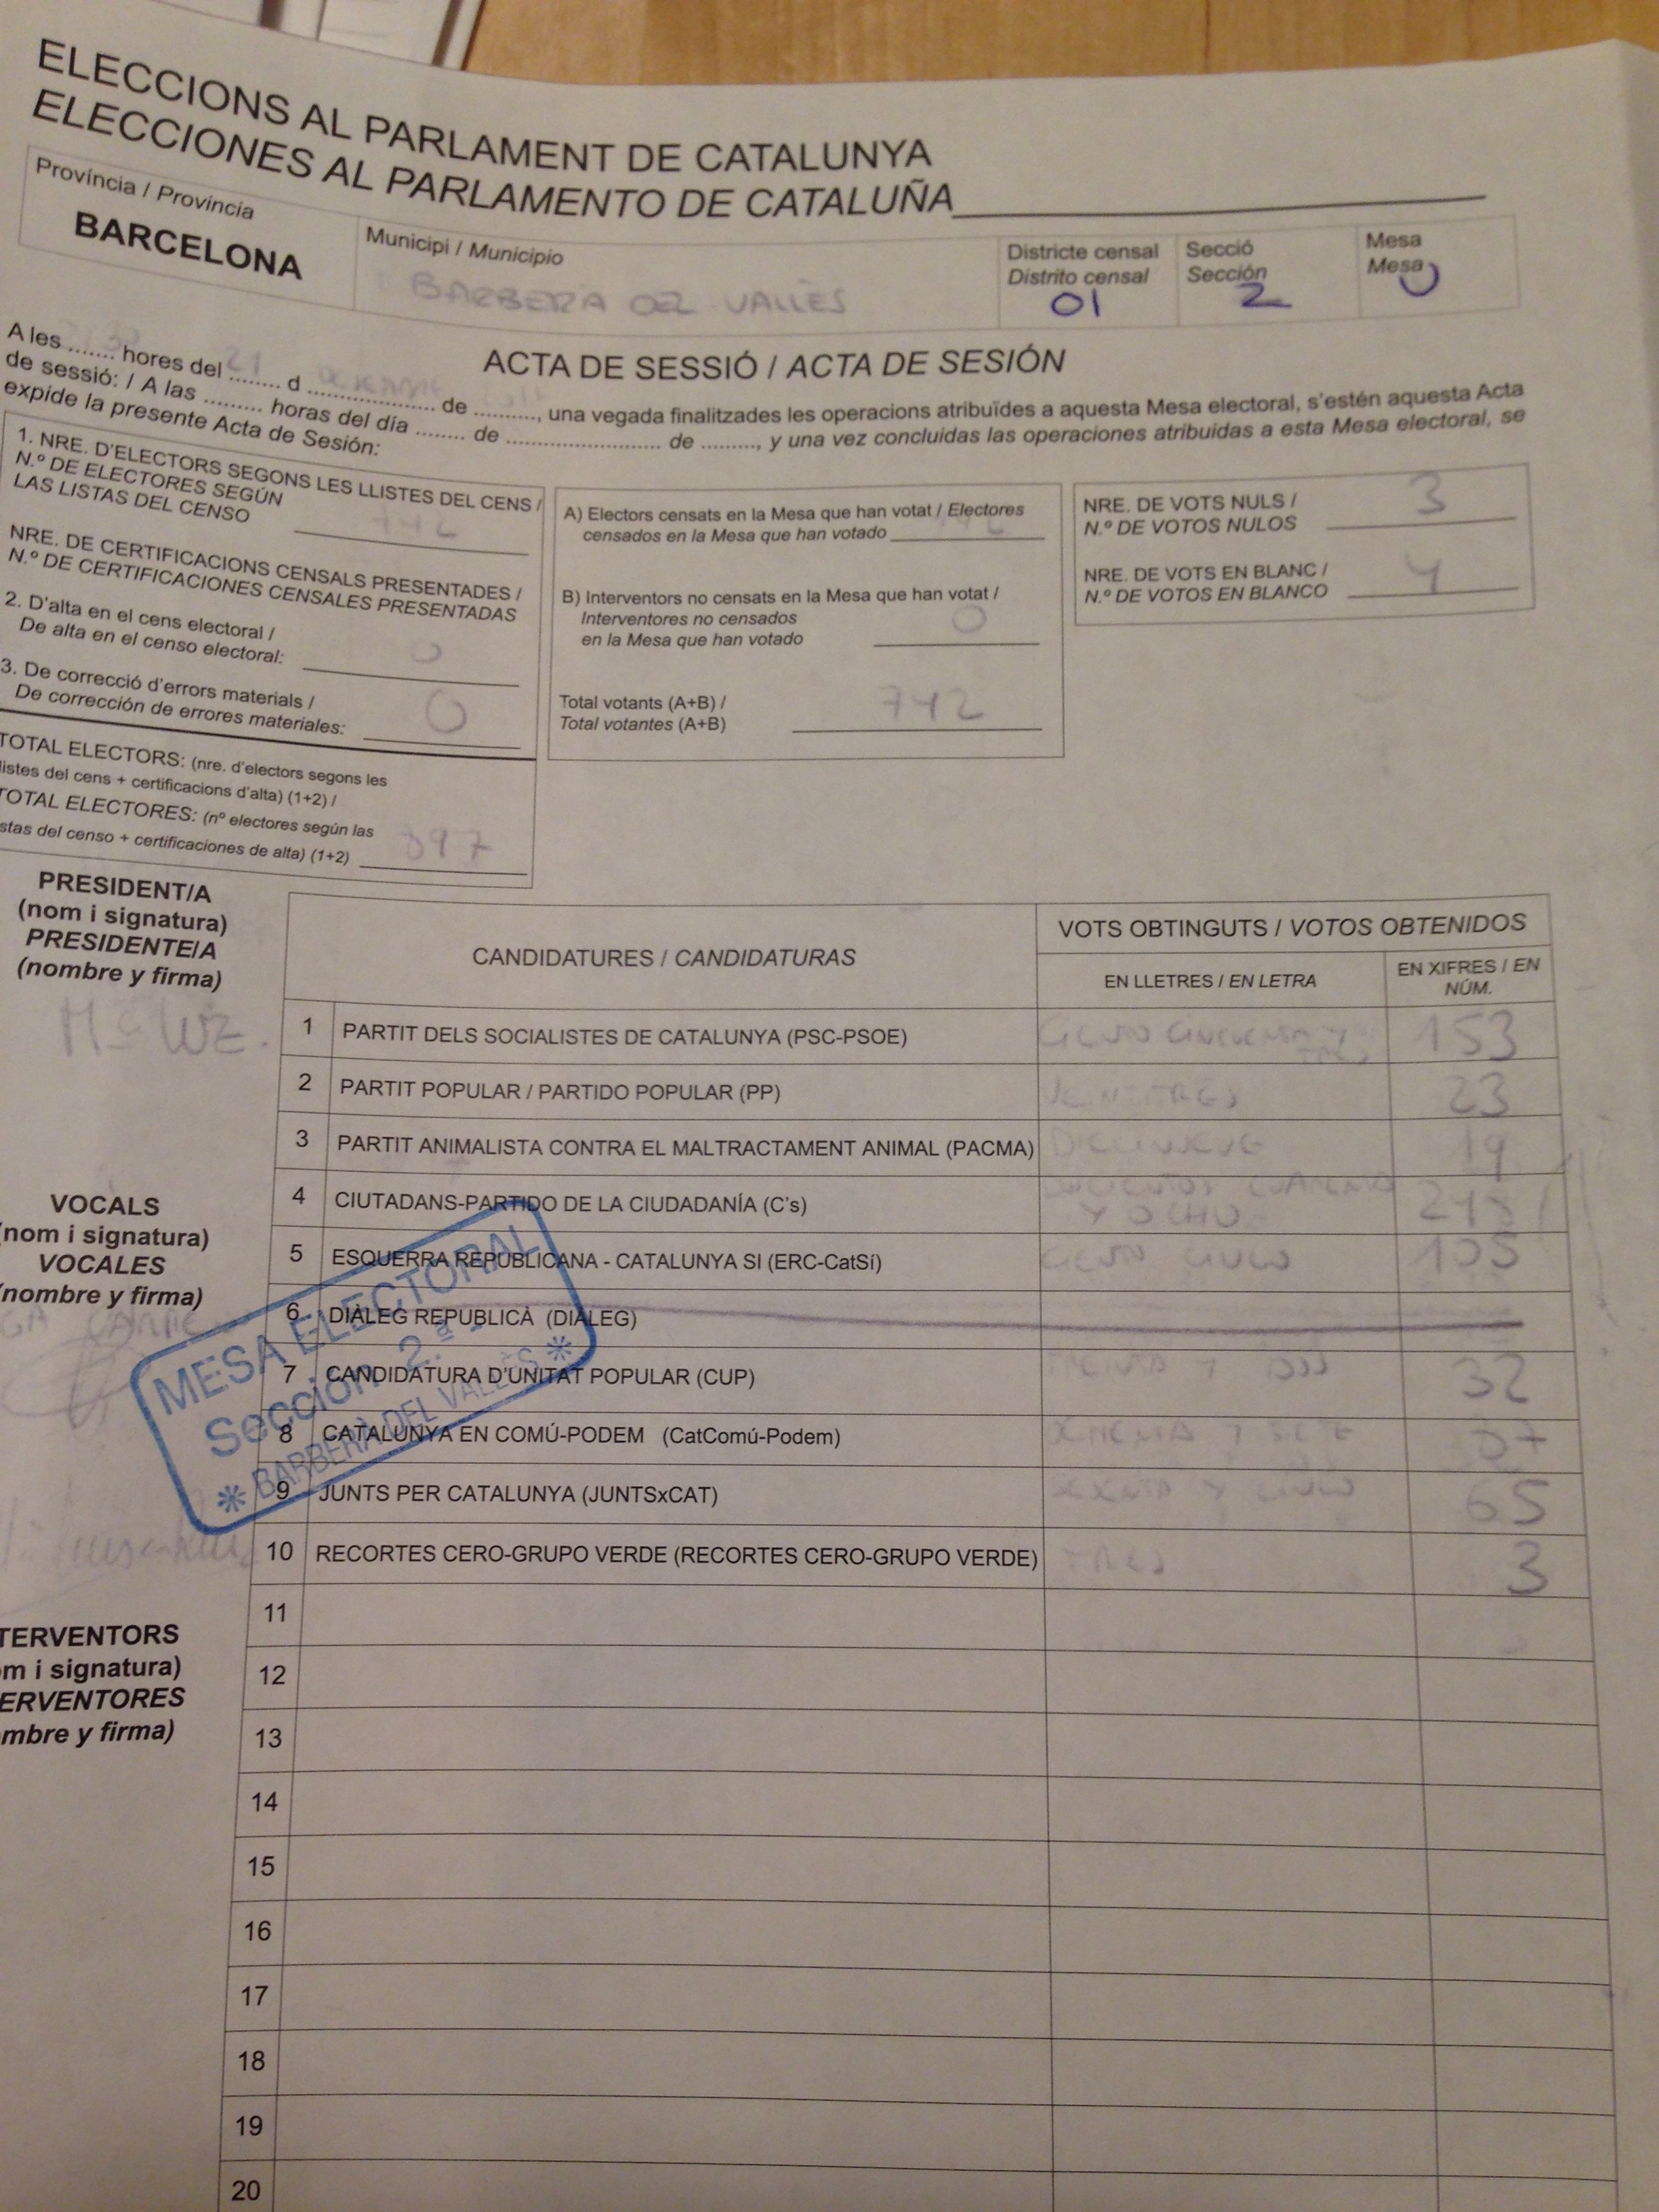 ELECCIONS AL PARLAMENT DE CATALUNYA
ELECCIONES AL PARLAMENTO DE CATALUÑA
Província / Provincia
BARCELONA
Municipi / Municipio
BARBERÀ DEL VALLÈS
Districte censal
Distrito censal
01
Secció
Sección
2
Mesa
Mesa
U
ACTA DE SESSIÓ / ACTA DE SESIÓN
A les ....... hores del 21 d ................... de .........., una vegada finalitzades les operacions atribuïdes a aquesta Mesa electoral, s'estén aquesta Acta
de sessió: / A las ......... horas del día ........ de ...................... de ........., y una vez concluidas las operaciones atribuidas a esta Mesa electoral, se
expide la presente Acta de Sesión:
1. NRE. D'ELECTORS SEGONS LES LLISTES DEL CENS /
N.º DE ELECTORES SEGÚN
LAS LISTAS DEL CENSO
742
NRE. DE CERTIFICACIONS CENSALS PRESENTADES /
N.º DE CERTIFICACIONES CENSALES PRESENTADAS
2. D'alta en el cens electoral /
De alta en el censo electoral: 0
3. De correcció d'errors materials /
De corrección de errores materiales: 0
TOTAL ELECTORS: (nre. d'electors segons les
listes del cens + certificacions d'alta) (1+2) /
TOTAL ELECTORES: (nº electores según las
stas del censo + certificaciones de alta) (1+2)
A) Electors censats en la Mesa que han votat / Electores
censados en la Mesa que han votado
B) Interventors no censats en la Mesa que han votat /
Interventores no censados
en la Mesa que han votado 0
Total votants (A+B) /
Total votantes (A+B) 742
NRE. DE VOTS NULS /
N.º DE VOTOS NULOS 3
NRE. DE VOTS EN BLANC /
N.º DE VOTOS EN BLANCO 4
PRESIDENT/A
(nom i signatura)
PRESIDENTE/A
(nombre y firma)
VOCALS
(nom i signatura)
VOCALES
(nombre y firma)
TERVENTORS
om i signatura)
ERVENTORES
mbre y firma)
CANDIDATURES / CANDIDATURAS
VOTS OBTINGUTS / VOTOS OBTENIDOS
EN LLETRES / EN LETRA
EN XIFRES / EN
NÚM.
1 PARTIT DELS SOCIALISTES DE CATALUNYA (PSC-PSOE) CIENTO CINCUENTA Y TRES 153
2 PARTIT POPULAR / PARTIDO POPULAR (PP) VEINTITRES 23
3 PARTIT ANIMALISTA CONTRA EL MALTRACTAMENT ANIMAL (PACMA) DIECINUEVE 19
4 CIUTADANS-PARTIDO DE LA CIUDADANÍA (C's) DOSCIENTOS CUARENTA Y OCHO 248
5 ESQUERRA REPUBLICANA - CATALUNYA SI (ERC-CatSí) CIENTO CINCO 105
6 DIÀLEG REPUBLICÀ (DIÀLEG)
7 CANDIDATURA D'UNITAT POPULAR (CUP) TREINTA Y DOS 32
8 CATALUNYA EN COMÚ-PODEM (CatComú-Podem) Y SIETE
9 JUNTS PER CATALUNYA (JUNTSxCAT) Y CINCO 65
10 RECORTES CERO-GRUPO VERDE (RECORTES CERO-GRUPO VERDE) TRES 3
11
12
13
14
15
16
17
18
19
20
MESA ELECTORAL
Sección 2.ª
BARBERÀ DEL VALLÈS